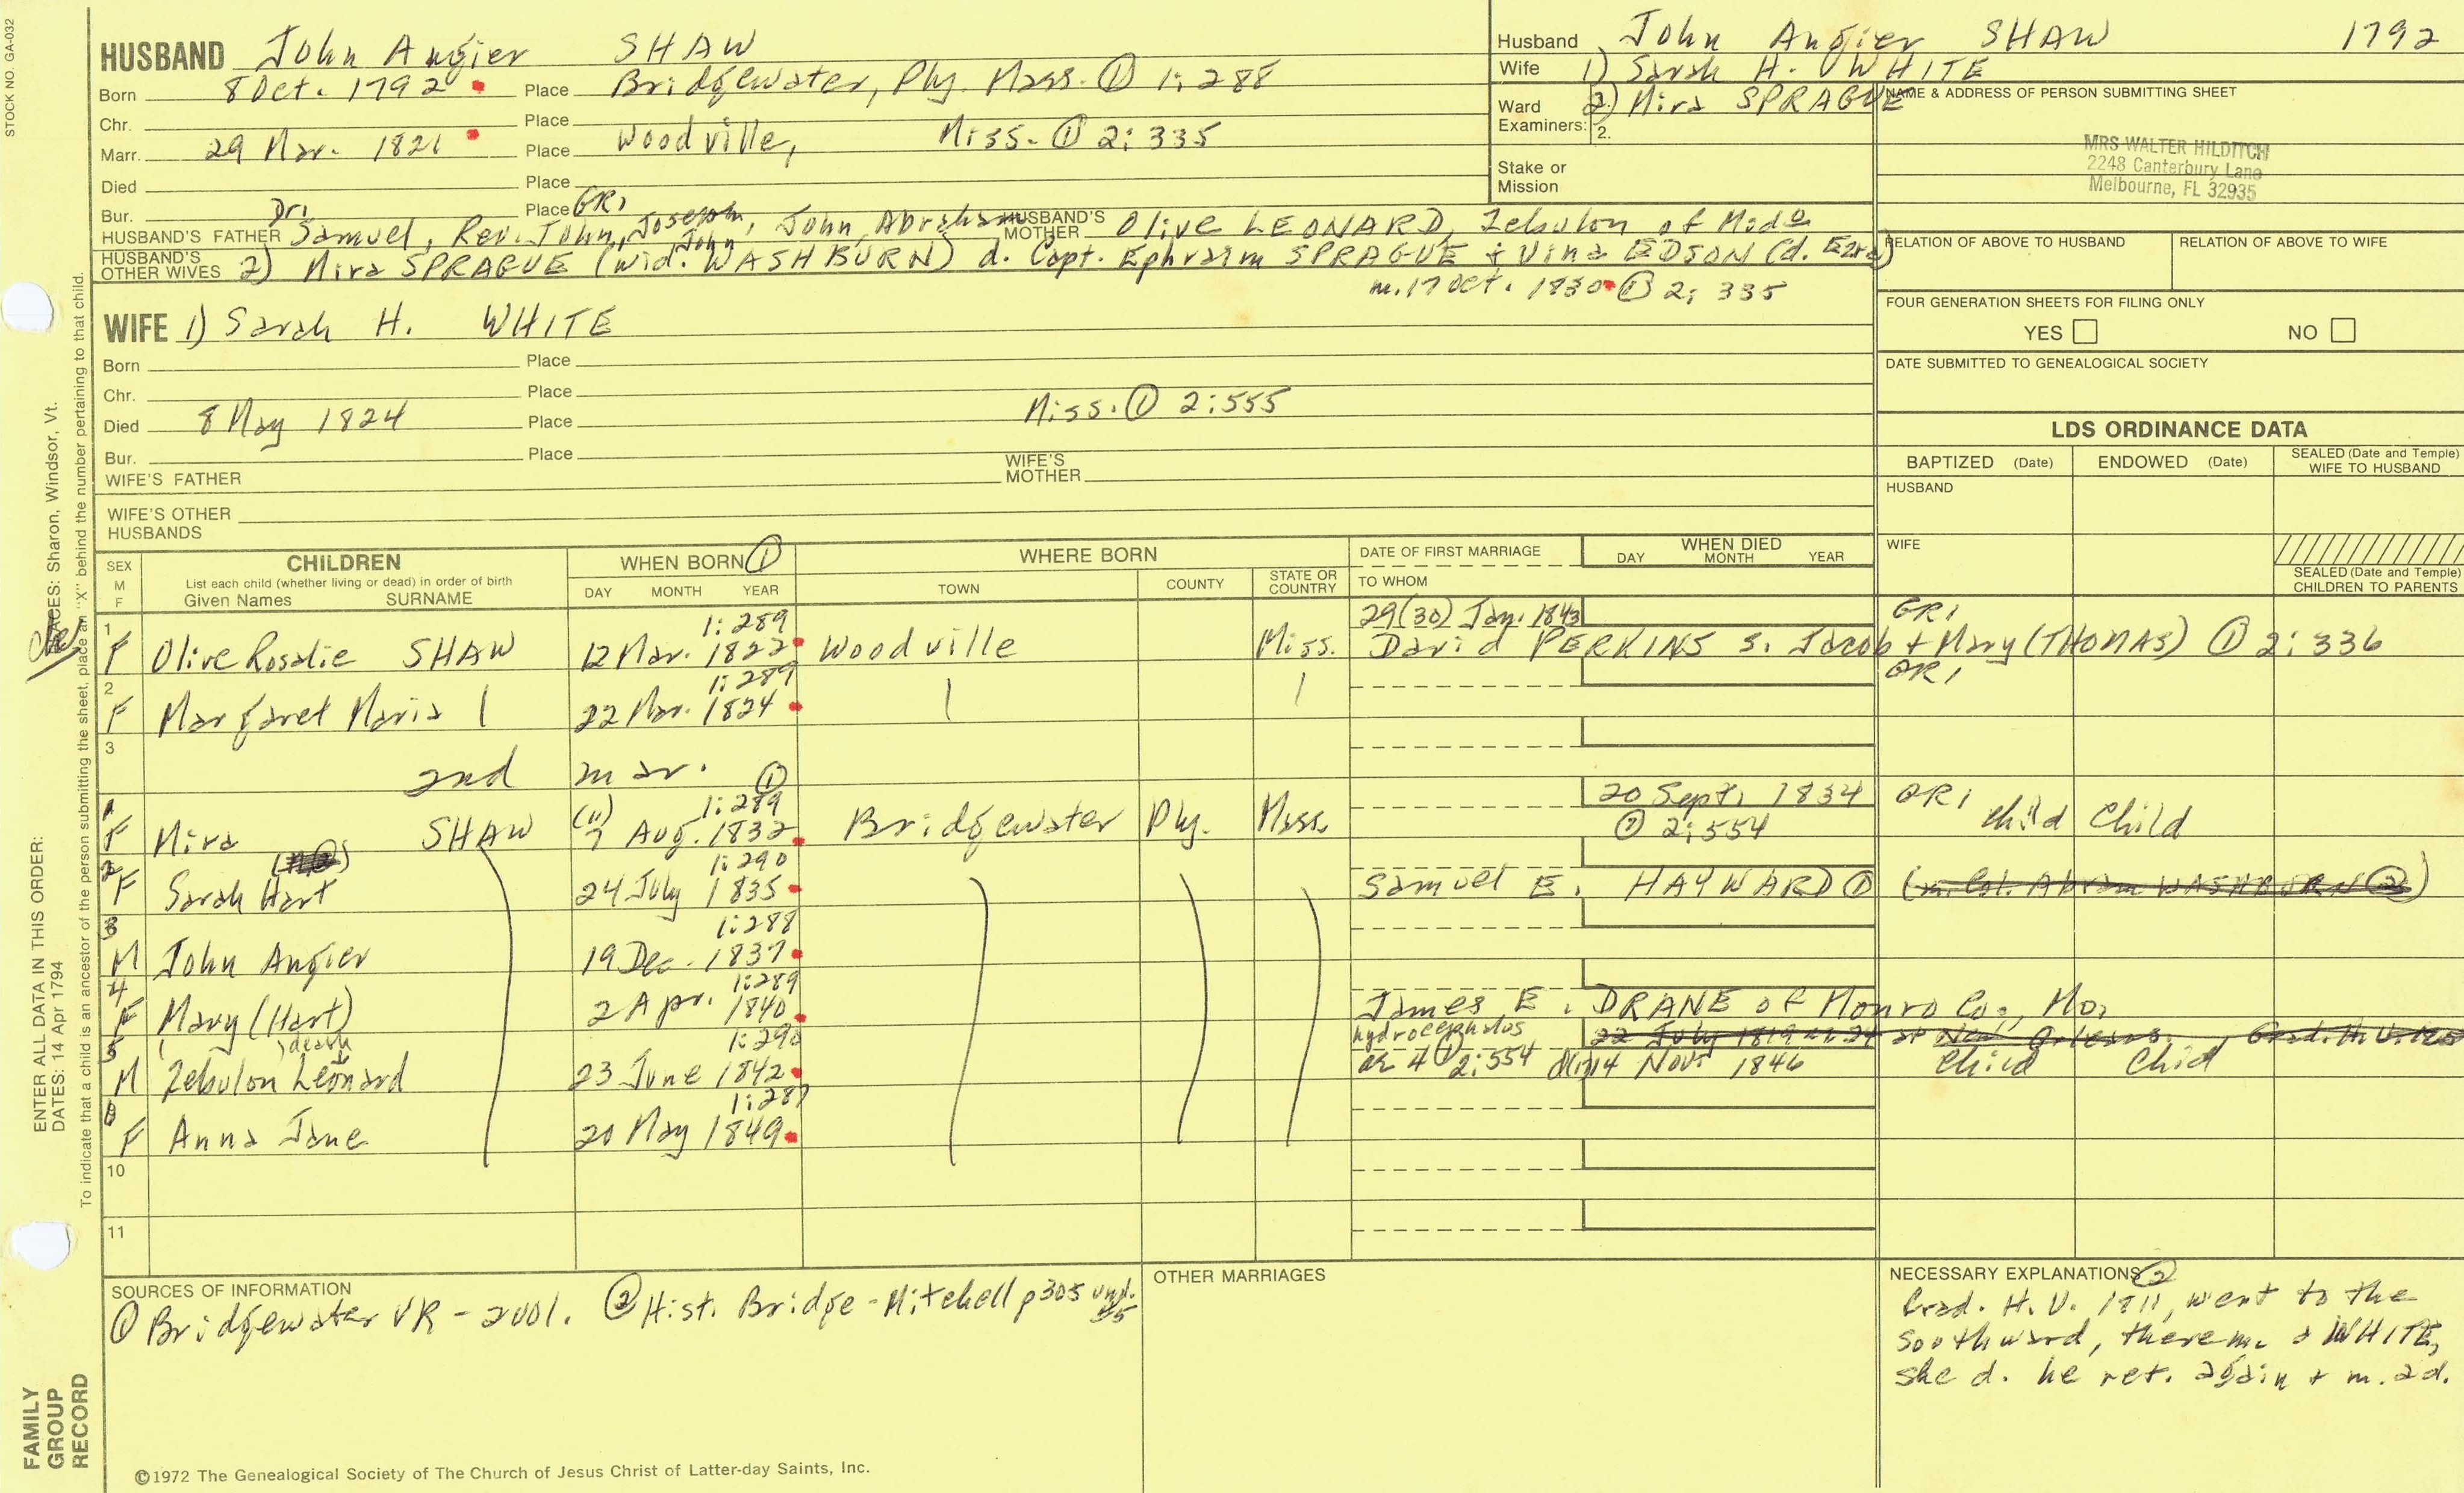 STOCK NO. GA-032
HUSBAND John Angier SHAW
Born 8 Oct. 1792 Place Bridgewater, Ply. Mass. ① 1:288
Chr. Place
Marr. 29 Mar. 1821 Place Woodville, Miss. ① 2:335
Died Place
Bur. Place GR1
HUSBAND'S FATHER Dr. Samuel, Rev. John, Joseph, John, Abraham HUSBAND'S MOTHER Olive LEONARD, Zebulon of Mado
HUSBAND'S OTHER WIVES 2) Mira SPRAGUE (wid. John WASHBURN) d. Capt. Ephraim SPRAGUE + Vina EDSON (d. Ezra)
m. 17 Oct. 1830 ① 2:335
Husband John Angier SHAW 1792
Wife 1) Sarah H. WHITE
Ward 2) Mira SPRAGUE
Examiners: 2.
Stake or Mission
NAME & ADDRESS OF PERSON SUBMITTING SHEET
MRS WALTER HILDITCH
2248 Canterbury Lane
Melbourne, FL 32935
RELATION OF ABOVE TO HUSBAND RELATION OF ABOVE TO WIFE
FOUR GENERATION SHEETS FOR FILING ONLY
YES NO
DATE SUBMITTED TO GENEALOGICAL SOCIETY
WIFE 1) Sarah H. WHITE
Born Place
Chr. Place
Died 8 May 1824 Place Miss. ① 2:555
Bur. Place
WIFE'S FATHER WIFE'S MOTHER
WIFE'S OTHER HUSBANDS
LDS ORDINANCE DATA
BAPTIZED (Date) ENDOWED (Date) SEALED (Date and Temple) WIFE TO HUSBAND
HUSBAND
WIFE
SEALED (Date and Temple) CHILDREN TO PARENTS
SEX M F CHILDREN List each child (whether living or dead) in order of birth Given Names SURNAME
WHEN BORN ① DAY MONTH YEAR
WHERE BORN TOWN COUNTY STATE OR COUNTRY
DATE OF FIRST MARRIAGE TO WHOM
WHEN DIED DAY MONTH YEAR
1 1:289 29(30) Jan. 1843 GR1
F Olive Rosalie SHAW 12 Mar. 1822 Woodville Miss. David PERKINS s. Jacob + Mary (THOMAS) ① 2:336
2 1:289 GR1
F Margaret Maria 22 Mar. 1824
3
2nd mar. ①
1 (11) 1:289 20 Sept. 1834 GR1
F Mira SHAW 7 Aug. 1832 Bridgewater Ply. Mass. ① 2:554 Child Child
2 1:290
F Sarah Hart 24 July 1835 Samuel E. HAYWARD ① (m. Col. Abram WASHBURN ②)
3 1:288
M John Angier 19 Dec. 1837
4 1:289
F Mary (Hart) 2 Apr. 1840 James E. DRANE of Monro Co., Mo.
5 death 1:290 hydrocephalus
M Zebulon Leonard 23 June 1842 ae 4 ① 2:554 14 Nov. 1846 Child Chid
6 1:287
F Anna Jane 20 May 1849
10
11
SOURCES OF INFORMATION
① Bridgewater VR - 2vol. ② Hist. Bridge - Mitchell p305 und. #5
OTHER MARRIAGES
NECESSARY EXPLANATIONS ②
Grad. H. U. 1811, went to the
southward, there m. a WHITE,
she d. he ret. again + m. 2d.
©1972 The Genealogical Society of The Church of Jesus Christ of Latter-day Saints, Inc.
FAMILY
GROUP
RECORD
ENTER ALL DATA IN THIS ORDER:
DATES: 14 Apr 1794
PLACES: Sharon, Windsor, Vt.
To indicate that a child is an ancestor of the person submitting the sheet, place an "X" behind the number pertaining to that child.